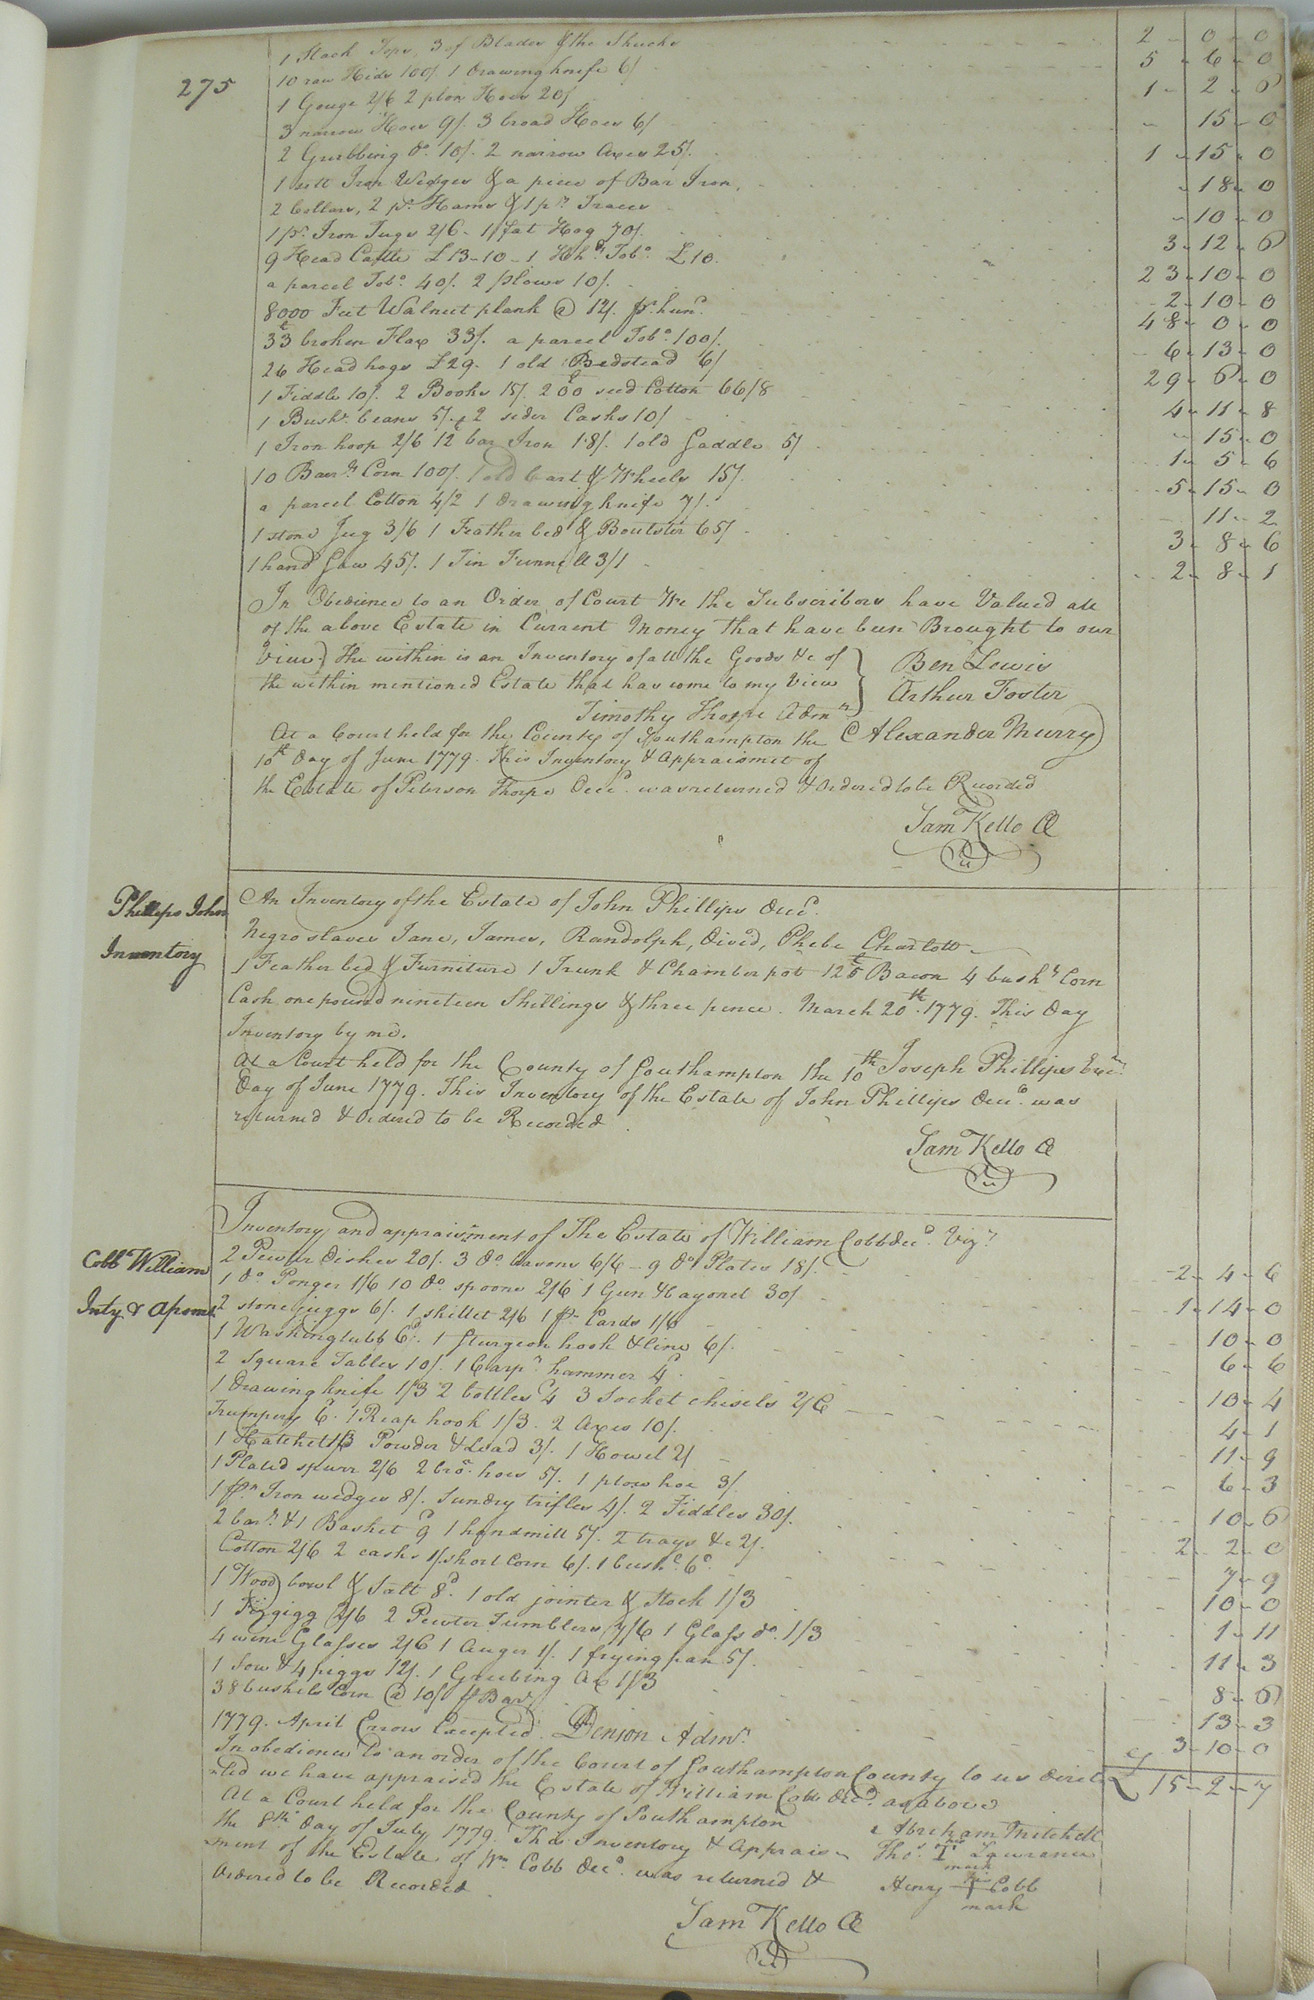 275
1 Stack Tops, 3 of Blades & the Shucks 2 - 0 - 0
10 raw Hides 100/. 1 Drawing knife 6/ 5 - 6 - 0
1 Gouge 2/6 2 plow Hoes 20/ 1 - 2 - 6
3 narrow Hoes 9/. 3 broad Hoes 6/ - 15 - 0
2 Grubbing Do. 10/. 2 narrow Axes 25/. 1 - 15 - 0
1 sett Iron Wedges & a piece of Bar Iron, - 18 - 0
2 Collars, 2 pr. Hams & 1 pr. Traces - 10 - 0
1 pr. Iron Tugs 2/6 - 1 fat Hog 70/. 3 - 12 - 6
9 Head Cattle £13-10 - 1 Hhd. Tobo. £10. 23 - 10 - 0
a parcel Tobo. 40/. 2 plows 10/. 2 - 10 - 0
8000 Feet Walnut plank @ 12/. pr. hund. 48 - 0 - 0
33 broken Flax 33/. a parcel Tobo. 100/. 6 - 13 - 0
26 Head hogs £29. 1 old Bedstead 6/ 29 - 6 - 0
1 Fiddle 10/. 2 Books 15/. 200 seed Cotton 66/8 4 - 11 - 8
1 Bushl. beans 5/. & 2 sider Casks 10/ - 15 - 0
1 Iron hoop 2/6 12 bar Iron 18/. 1 old Saddle 5/ 1 - 5 - 6
10 Barrs. Corn 100/. 1 old Cart & Wheels 15/. 5 - 15 - 0
a parcel Cotton 4/2 1 Drawing knife 7/. 11 - 2
1 stone Jug 3/6 1 Feather bed & Boulster 65/ 3 - 8 - 6
1 hand Saw 45/. 1 Tin Funnell 3/1 2 - 8 - 1
In Obedience to an Order of Court We the Subscribers have Valued all
of the above Estate in Current Money that have been Brought to our
View. The within is an Inventory of all the Goods &c of
the within mentioned Estate that has come to my View
Timothy Thorpe Admr.
Ben Lewis
Arthur Foster
Alexander Murry
At a Court held for the County of Southampton the
10th Day of June 1779. This Inventory & Appraisment of
the Estate of Peterson Thorpe Decd. was returned & Ordered to be Recorded
Sam Kello Cl
Phillips John
Inventory
An Inventory of the Estate of John Phillips Decd.
Negro slaves Jane, James, Randolph, David, Phebe Charlott
1 Feather bed & Furniture 1 Trunk & Chamber pot 125 Bacon 4 bushs. Corn
Cash one pound nineteen Shillings & three pence. March 20th. 1779. This Day
Inventory by me.
Joseph Phillips Exr.
At a Court held for the County of Southampton the 10th
Day of June 1779. This Inventory of the Estate of John Phillips Decd. was
returned & Ordered to be Recorded
Sam Kello Cl
Cobb William
Inty & Apsmt
Inventory and appraisment of The Estate of William Cobb Decd. Vizt.
2 Pewter Dishes 20/. 3 Do. basons 6/6 - 9 Do. Plates 18/. 2 - 4 - 6
1 Do. Ponger 1/6 10 Do. spoons 2/6 1 Gun & Bayonet 30/ 1 - 14 - 0
2 stone juggs 6/. 1 skillet 2/6 1 pr. Cards 1/6 10 - 0
1 Washing tubb 6d. 1 Sturgeon hook & line 6/. 6 - 6
2 Square Tables 10/. 1 Carpr. hammer 4d. 10 - 4
1 Drawing knife 1/3 2 bottles 4d 3 Socket chisels 2/6 4 - 1
Trumpery 6d. 1 Reap hook 1/3. 2 Axes 10/. 11 - 9
1 Hatchet 1/3 Powder & Lead 3/. 1 Howel 2/ 6 - 3
1 Plated spurr 2/6 2 brod. hoes 5/. 1 plow hoe 3/. 10 - 6
1 pr. Iron wedges 8/. Sundry trifles 4/. 2 Fiddles 30/. 2 - 2 - 0
2 barrs. & 1 Basket 9d 1 handmill 5/. 2 trays &c 2/. 7 - 9
Cotton 2/6 2 casks 1/ short Corn 6/. 1 bushl. 6d. 10 - 0
1 Wood bowl & Salt 8d. 1 old jointer & Stock 1/3 1 - 11
1 Fizgigg 2/6 2 Pewter Tumblers 7/6 1 Glass do. 1/3 11 - 3
4 wine Glasses 2/6 1 Auger 1/. 1 frying pan 5/. 8 - 6
1 Sow & 4 piggs 12/. 1 Grubing Ax 1/3 13 - 3
38 bushels Corn @ 10/ pr Barl. 3 - 10 - 0
£ 15 - 2 - 7
1779. April Errors Excepted. Denson Admr.
In obedience to an order of the Court of Southampton County to us direc-
-ted we have appraised the Estate of William Cobb Decd. as above
At a Court held for the County of Southampton
the 8th Day of July 1779. This Inventory & Apprais-
-ment of the Estate of Wm. Cobb Decd. was returned &
Ordered to be Recorded
Abraham Mitchell
Thos. T Lawrence
mark
his
Henry + Cobb
mark
Sam Kello Cl